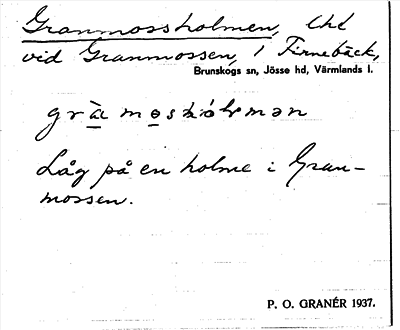 Granmossholmen,
vid Granmossen, 1 Finnebäck,
Brunskogs sn, Jösse hd, Värmlands l.
Låg på en holme i Gran-
mossen.
P. O. GRANÉR 1937.